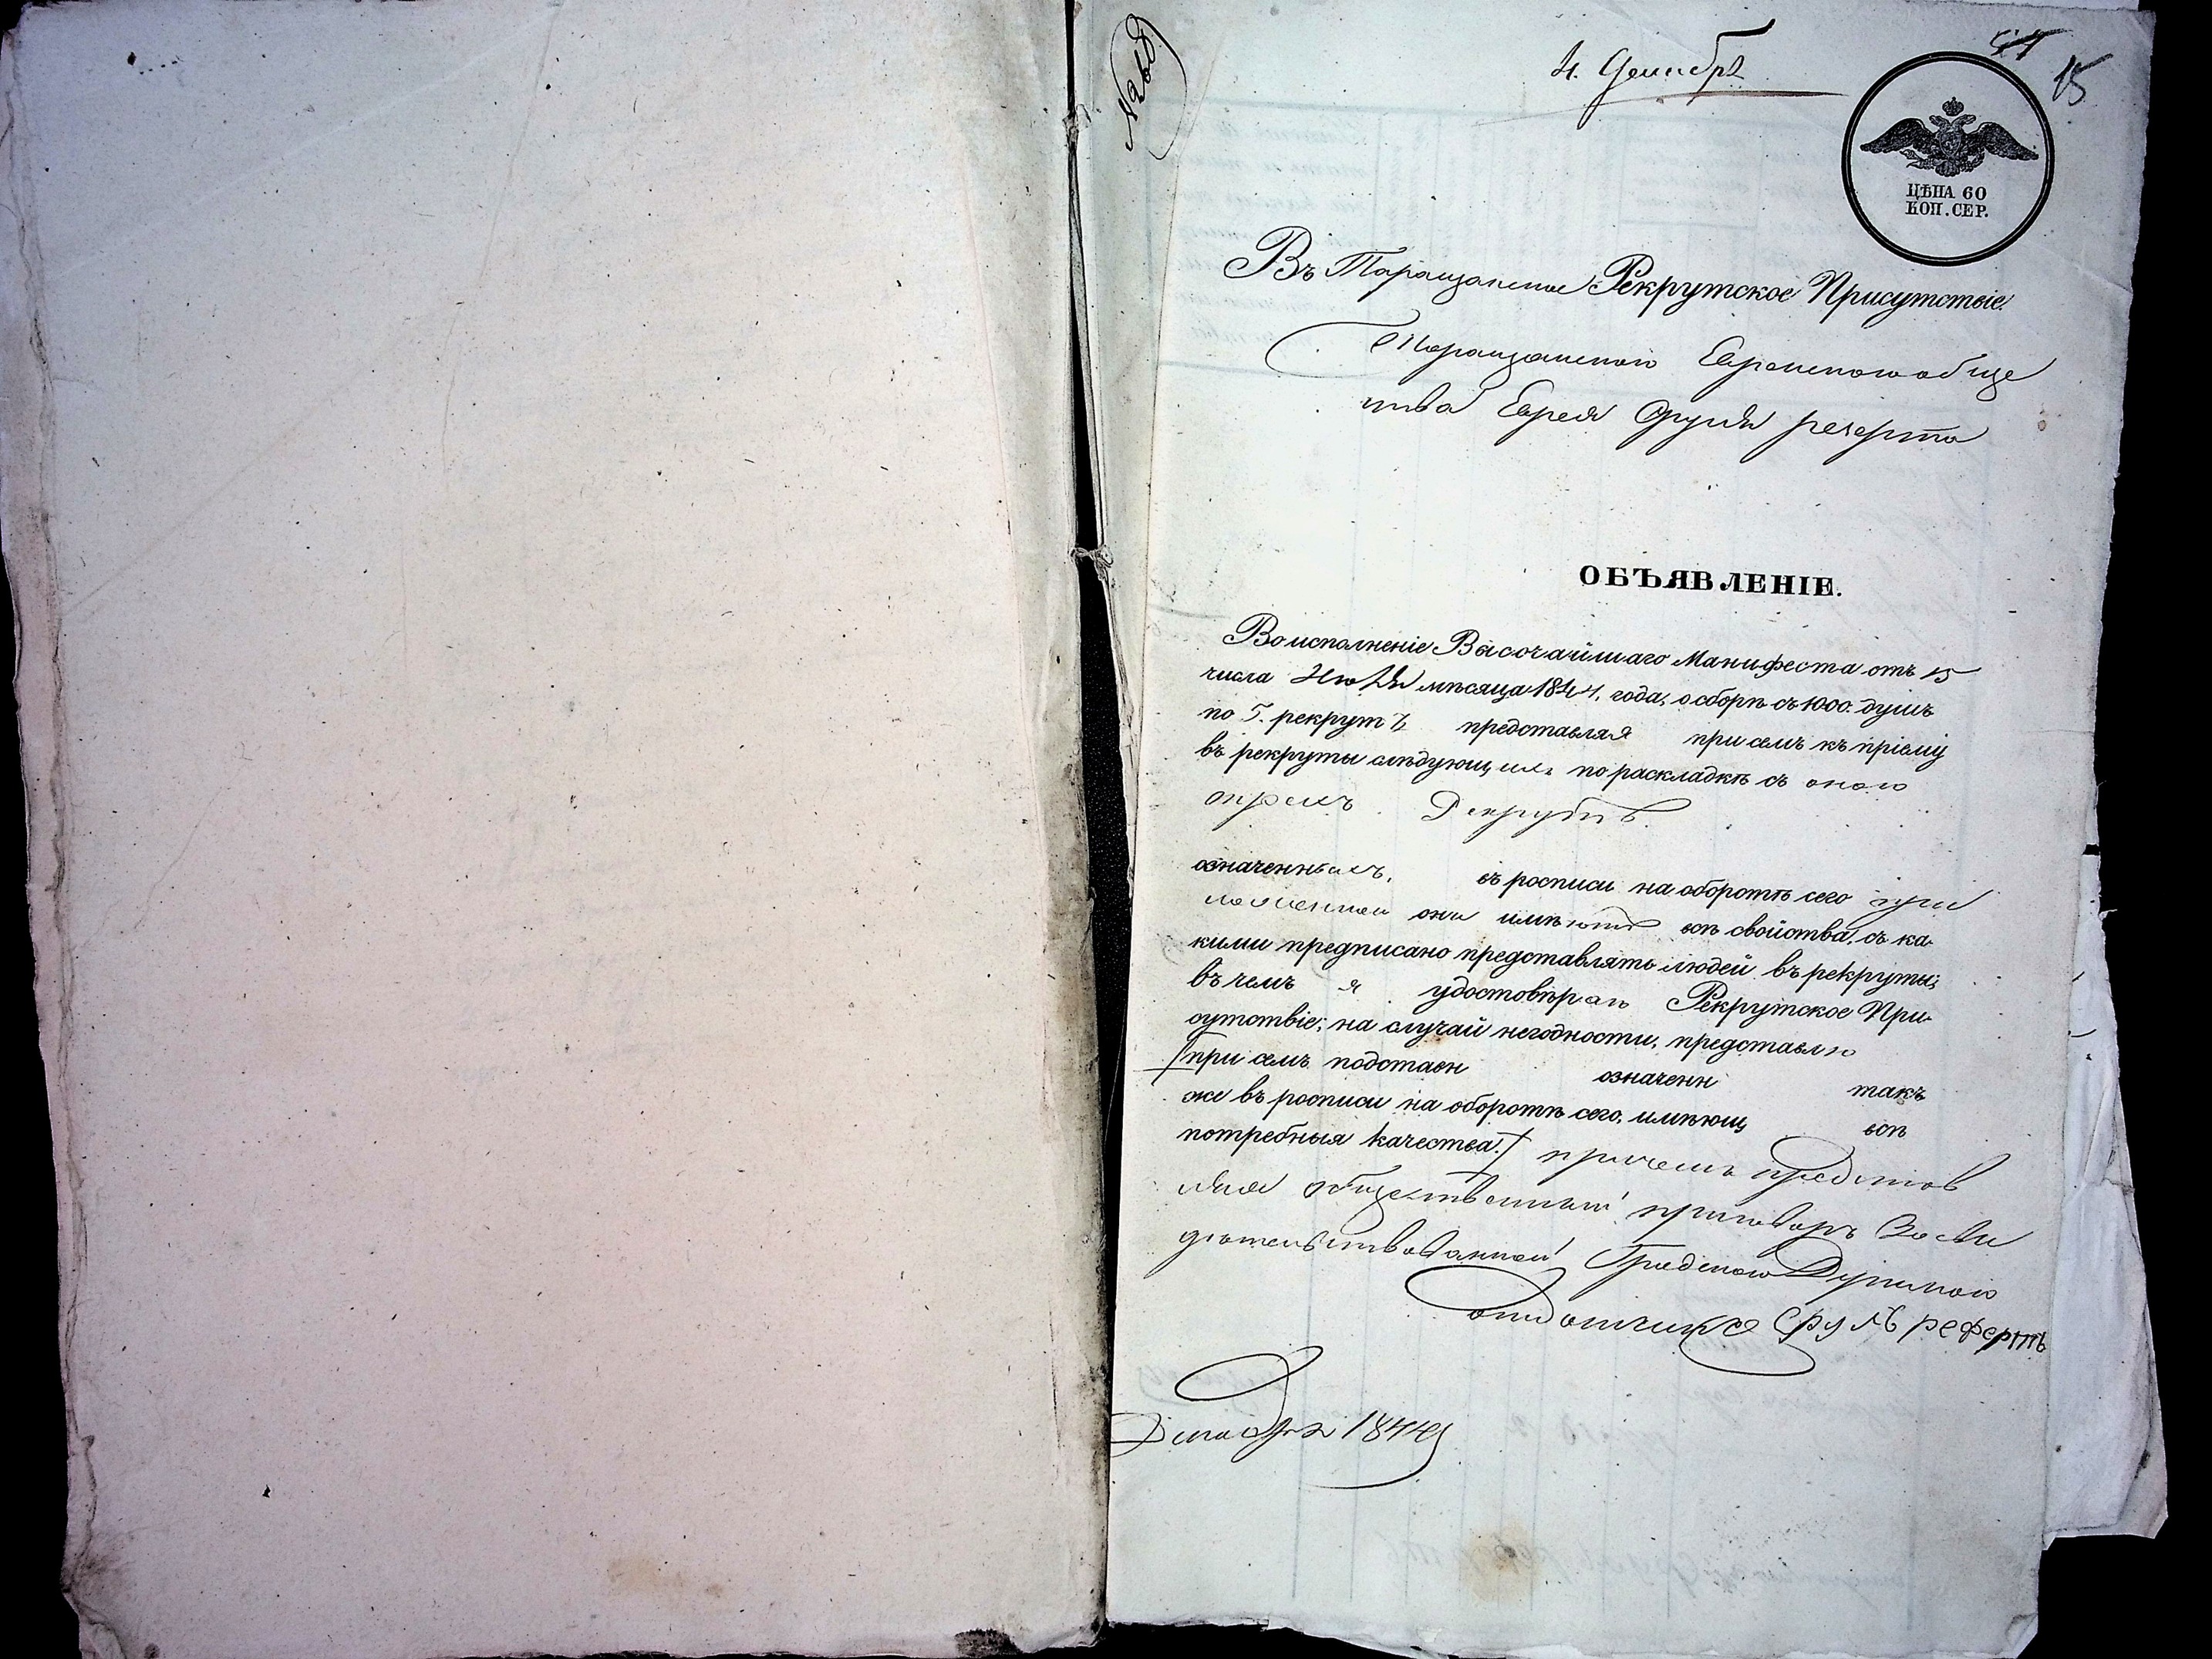 4. Декабря
15
ЦѢНА 60
КОП. СЕР.
Въ Таращанское Рекрутское Присутствіе.
Таращанского Еврейского обще
ства Еврея Сруля реферта
ОБЪЯВЛЕНІЕ.
Во исполненіе Высочайшаго Манифеста отъ 15
числа Июля мѣсяца 1844. года, о сборѣ съ 1000. душъ
по 5. рекрутъ представляя при семъ къ пріему
въ рекруты слѣдующихъ по раскладкѣ съ оного
трехъ Рекрутъ
означенныхъ, въ росписи на оборотѣ сего при
ложенной они имѣютъ всѣ свойства, съ ка-
кими предписано представлять людей въ рекруты;
въ чемъ я удостовѣряя Рекрутское При-
сутствіе; на случай негодности, представлю
при семъ подставн означенн такъ
же въ росписи на оборотѣ сего, имѣющ всѣ
потребныя качества. причемъ представ
ляя общественный приговоръ Засви
дѣтельствованной Градскою Думою
отдатчикъ Сруль рефертъ
Декабря 1844